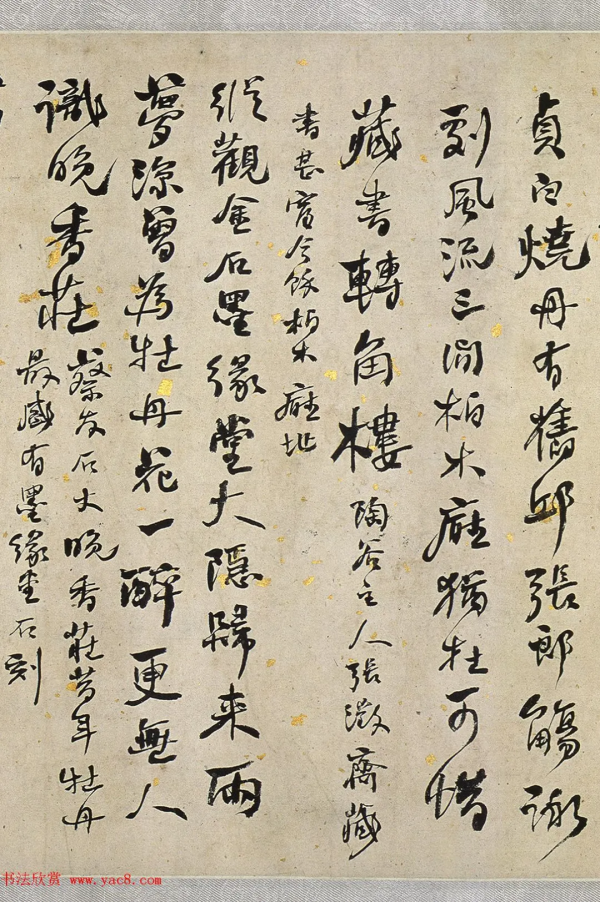 貞白燒丹有舊邱張郎觴詠
風流三間柏木廳猶在可惜
藏書轉角樓 陶谷主人張澂齋藏
書甚富今餘柏木廳地
縱觀金石墨緣堂大隱歸來兩
鬢涼曾為牡丹花一醉更無人
識晚香莊 蔡友石丈晚香莊昔年牡丹
最盛有墨緣堂石刻
书法欣赏 www.yac8.com